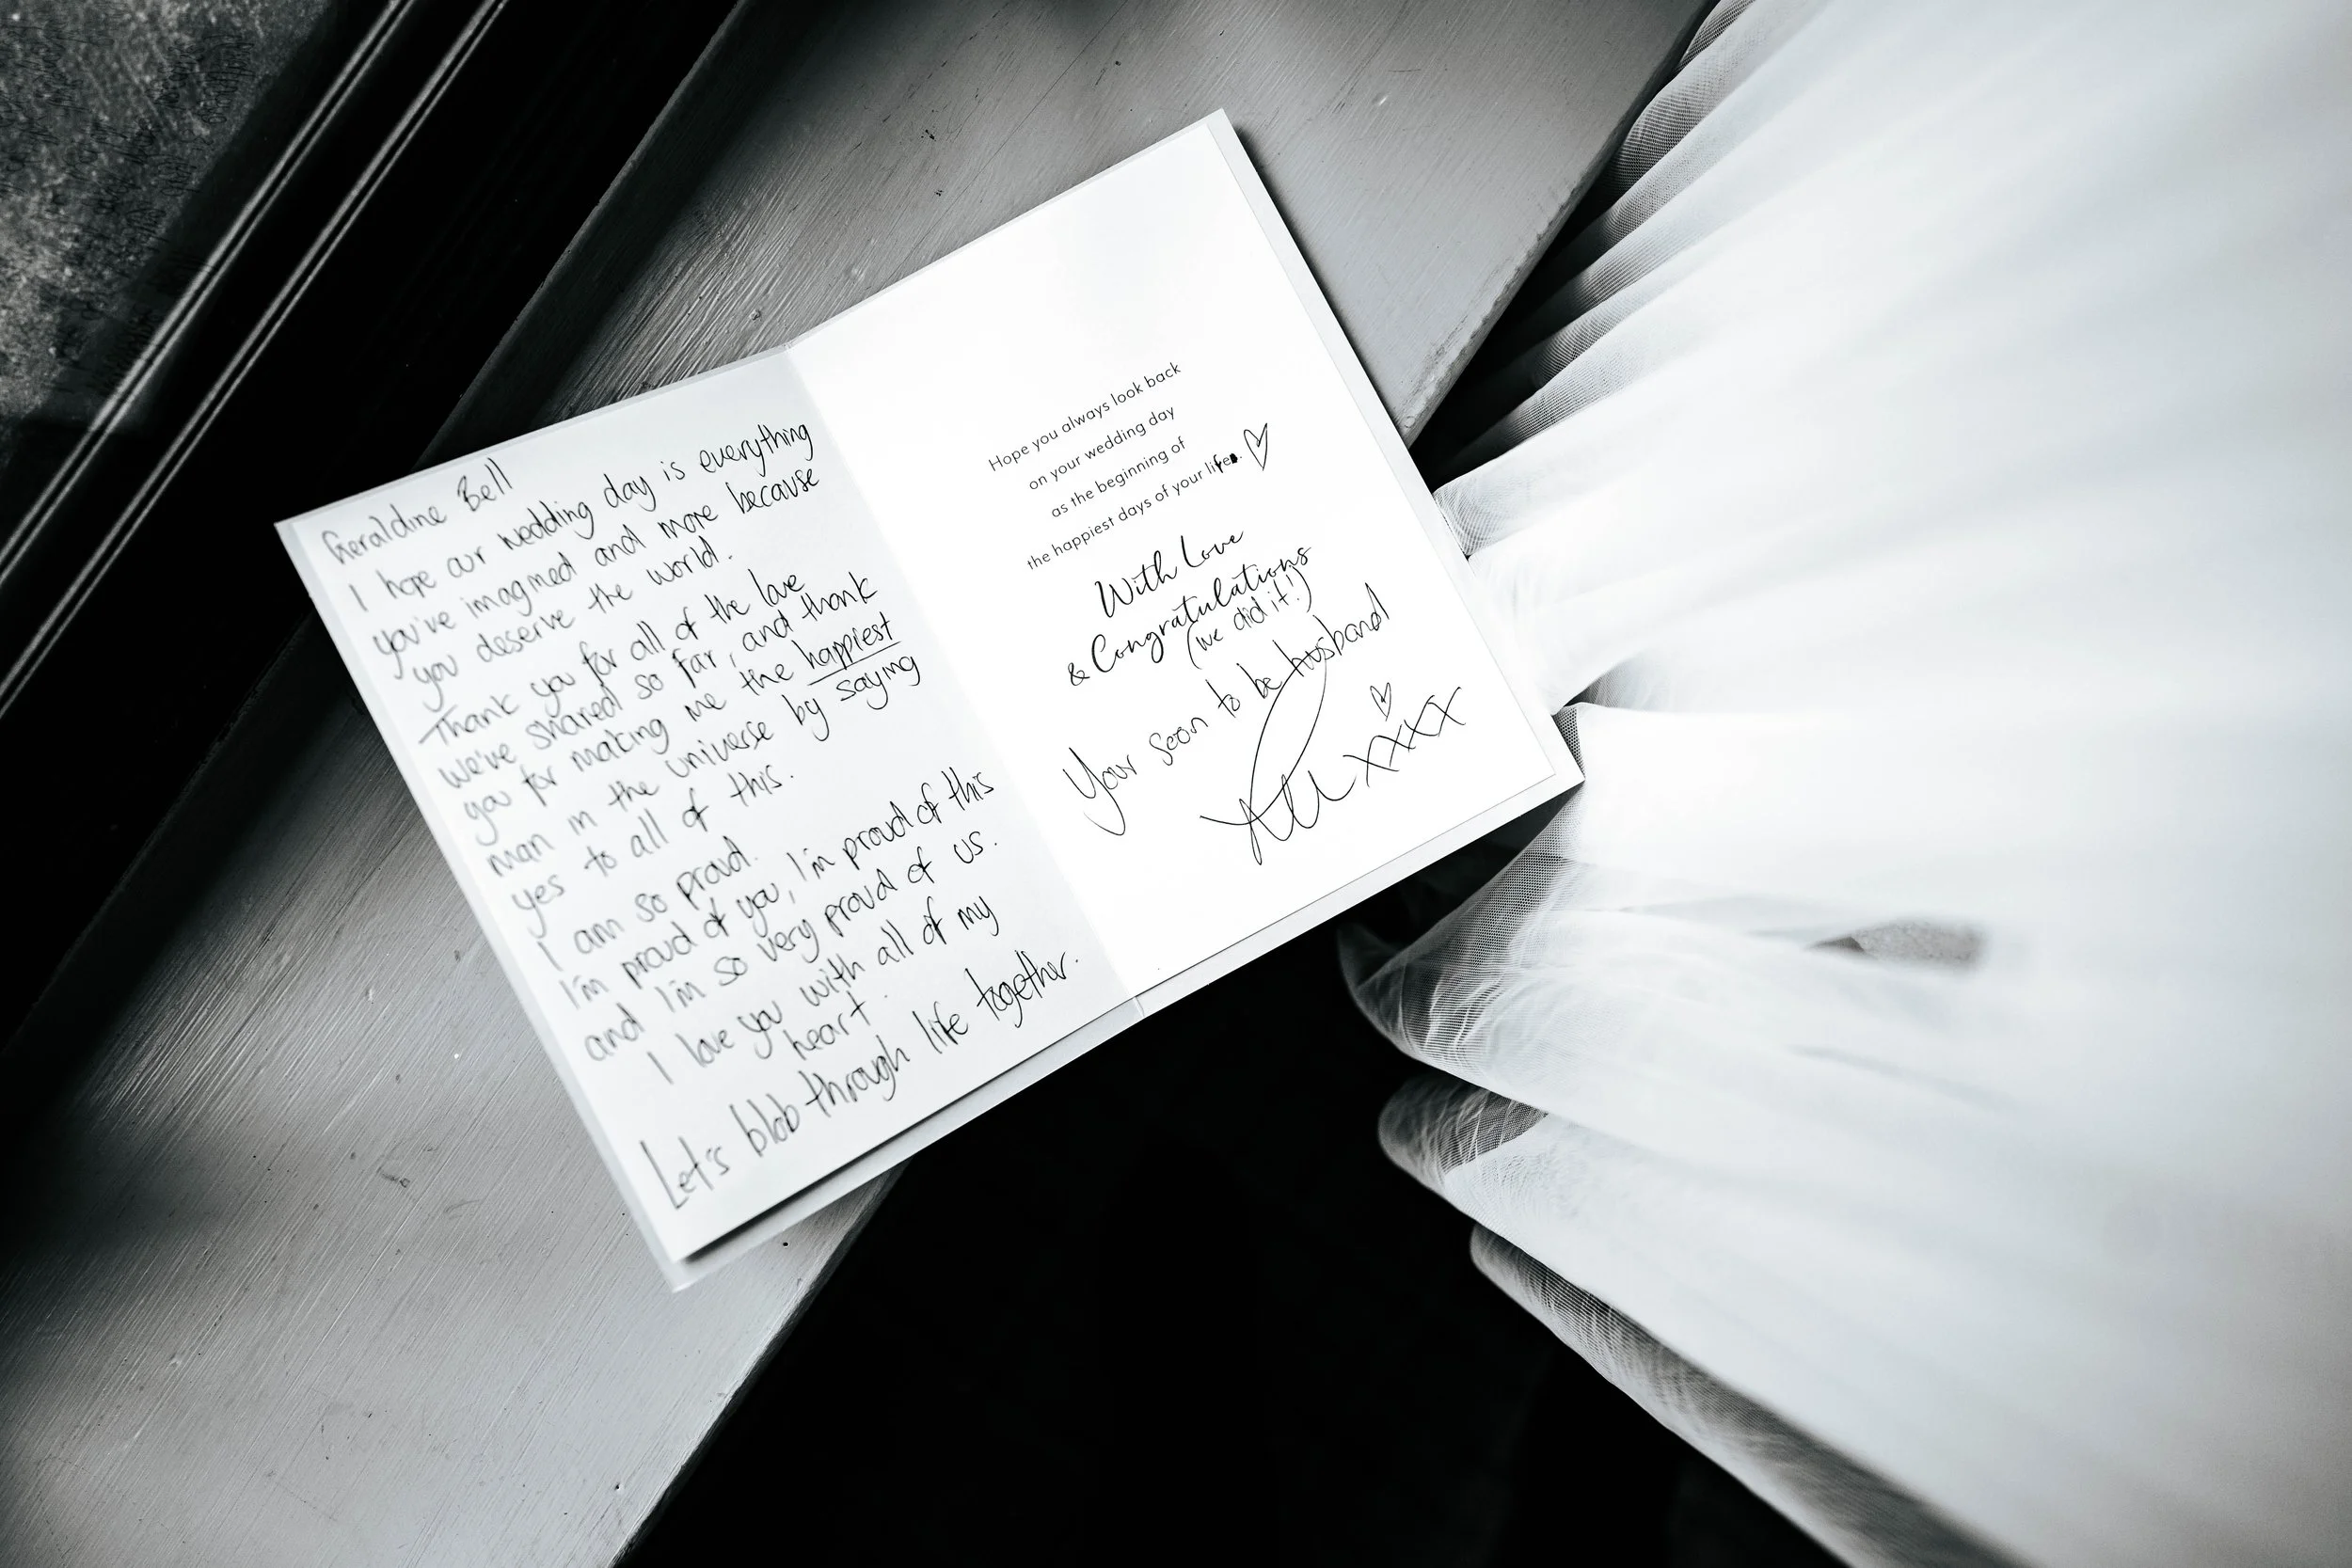 Geraldine Bell
I hope our wedding day is everything
you've imagined and more because
you deserve the world.
Thank you for all of the love
we've shared so far, and thank
you for making me the happiest
man in the universe by saying
yes to all of this.
I am so proud.
I'm proud of you, I'm proud of this
and I'm so very proud of us.
I love you with all of my
heart.
Let's blob through life together.
Hope you always look back
on your wedding day
as the beginning of
the happiest days of your life.
With Love
& Congratulations
(we did it!)
Your soon to be husband
xxxx